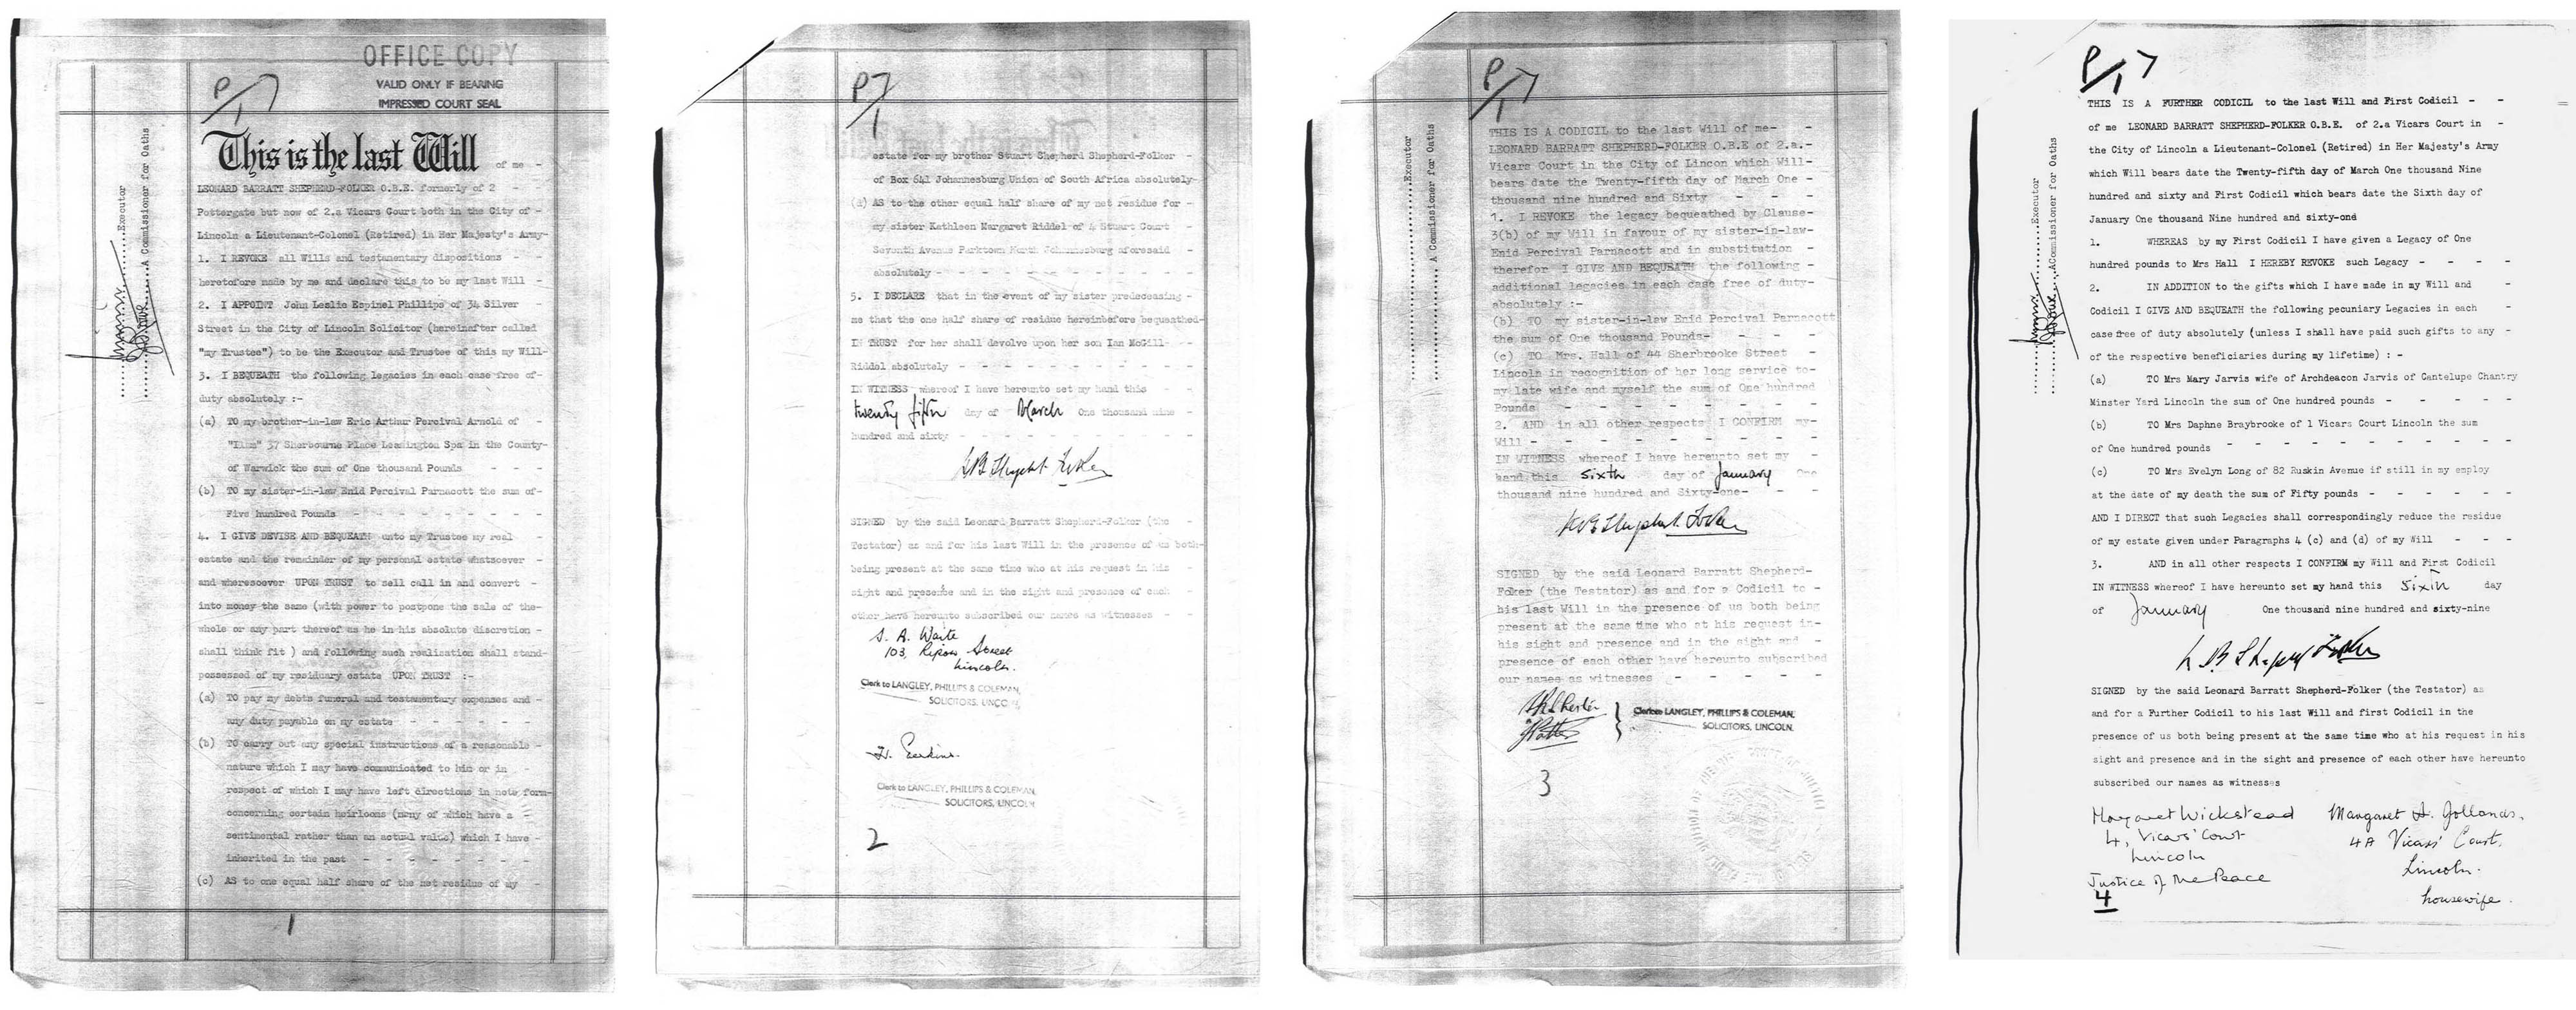 OFFICE COPY
VALID ONLY IF BEARING
IMPRESSED COURT SEAL
P/17
Executor
A Commissioner for Oaths
This is the last Will of me -
LEONARD BARRATT SHEPHERD-FOLKER O.B.E. formerly of 2 -
Pottergate but now of 2.a Vicars Court both in the City of -
Lincoln a Lieutenant-Colonel (Retired) in Her Majesty's Army-
1. I REVOKE all Wills and testamentary dispositions - -
heretofore made by me and declare this to be my last Will -
2. I APPOINT John Leslie Espinel Phillips of 34 Silver
Street in the City of Lincoln Solicitor (hereinafter called
"my Trustee") to be the Executor and Trustee of this my Will-
3. I BEQUEATH the following legacies in each case free of-
duty absolutely :-
(a) TO my brother-in-law Eric Arthur Percival Arnold of -
37 Sherbourne Place Leamington Spa in the County-
of Warwick the sum of One thousand Pounds - - -
(b) TO my sister-in-law Enid Percival Parnacott the sum of-
Five hundred Pounds - - - - - - - -
4. I GIVE DEVISE AND BEQUEATH unto my Trustee my real -
estate and the remainder of my personal estate whatsoever -
and wheresoever UPON TRUST to sell call in and convert -
into money the same (with power to postpone the sale of the-
whole or any part thereof as he in his absolute discretion -
shall think fit ) and following such realisation shall stand-
possessed of my residuary estate UPON TRUST :-
(a) TO pay my debts funeral and testamentary expenses and -
any duty payable on my estate - - - - - -
(b) TO carry out any special instructions of a reasonable -
nature which I may have communicated to him or in -
respect of which I may have left directions in note form-
concerning certain heirlooms (many of which have a -
sentimental rather than an actual value) which I have -
inherited in the past - - - - - - - -
(c) AS to one equal half share of the net residue of my -
1
P7/1
estate for my brother Stuart Shepherd Shepherd-Folker -
of Box 641 Johannesburg Union of South Africa absolutely-
(d) AS to the other equal half share of my net residue for -
my sister Kathleen Margaret Riddel of 4 Stuart Court
Seventh Avenue Parktown North Johannesburg aforesaid
absolutely - - - - - - - - - -
5. I DECLARE that in the event of my sister predeceasing -
me that the one half share of residue hereinbefore bequeathed-
IN TRUST for her shall devolve upon her son Ian McGill- -
Riddel absolutely - - - - - - - - -
IN WITNESS whereof I have hereunto set my hand this - -
twenty fifth day of March One thousand nine -
hundred and sixty - - - - - - - - -
L B Shepherd Folker
SIGNED by the said Leonard Barratt Shepherd-Folker (the -
Testator) as and for his last Will in the presence of us both-
being present at the same time who at his request in his -
sight and presence and in the sight and presence of each -
other have hereunto subscribed our names as witnesses -
S. A. Waite
103, Ripon Street
Lincoln.
Clerk to LANGLEY, PHILLIPS & COLEMAN,
SOLICITORS, LINCOLN
Clerk to LANGLEY, PHILLIPS & COLEMAN,
SOLICITORS, LINCOLN
2
P/17
Executor
A Commissioner for Oaths
THIS IS A CODICIL to the last Will of me- -
LEONARD BARRATT SHEPHERD-FOLKER O.B.E of 2.a.-
Vicars Court in the City of Lincon which Will-
bears date the Twenty-fifth day of March One -
thousand nine hundred and Sixty - - - -
1. I REVOKE the legacy bequeathed by Clause-
3(b) of my Will in favour of my sister-in-law-
Enid Percival Parnacott and in substitution -
therefor I GIVE AND BEQUEATH the following -
additional legacies in each case free of duty-
absolutely :-
(b) TO my sister-in-law Enid Percival Parnacott
the sum of One thousand Pounds- - - - -
(c) TO Mrs. Hall of 44 Sherbrooke Street -
Lincoln in recognition of her long service to-
my late wife and myself the sum of One hundred
Pounds - - - - - - - - -
2. AND in all other respects I CONFIRM my-
Will - - - - - - - - - -
IN WITNESS whereof I have hereunto set my -
hand this sixth day of January One
thousand nine hundred and Sixty-one- - -
L B Shepherd Folker
SIGNED by the said Leonard Barratt Shepherd-
Foker (the Testator) as and for a Codicil to -
his last Will in the presence of us both being
present at the same time who at his request in-
his sight and presence and in the sight and -
presence of each other have hereunto subscribed
our names as witnesses - - - - -
Clerks to LANGLEY, PHILLIPS & COLEMAN,
SOLICITORS, LINCOLN.
3
P/17
Executor
A Commissioner for Oaths
THIS IS A FURTHER CODICIL to the last Will and First Codicil - -
of me LEONARD BARRATT SHEPHERD-FOLKER O.B.E. of 2.a Vicars Court in -
the City of Lincoln a Lieutenant-Colonel (Retired) in Her Majesty's Army
which Will bears date the Twenty-fifth day of March One thousand Nine
hundred and sixty and First Codicil which bears date the Sixth day of
January One thousand Nine hundred and sixty-one
1. WHEREAS by my First Codicil I have given a Legacy of One
hundred pounds to Mrs Hall I HEREBY REVOKE such Legacy - - - -
2. IN ADDITION to the gifts which I have made in my Will and -
Codicil I GIVE AND BEQUEATH the following pecuniary Legacies in each -
case free of duty absolutely (unless I shall have paid such gifts to any -
of the respective beneficiaries during my lifetime) : -
(a) TO Mrs Mary Jarvis wife of Archdeacon Jarvis of Cantelupe Chantry
Minster Yard Lincoln the sum of One hundred pounds - - - - -
(b) TO Mrs Daphne Braybrooke of 1 Vicars Court Lincoln the sum
of One hundred pounds - - - - - - - - - -
(c) TO Mrs Evelyn Long of 82 Ruskin Avenue if still in my employ
at the date of my death the sum of Fifty pounds - - - - -
AND I DIRECT that such Legacies shall correspondingly reduce the residue
of my estate given under Paragraphs 4 (c) and (d) of my Will - - -
3. AND in all other respects I CONFIRM my Will and First Codicil
IN WITNESS whereof I have hereunto set my hand this Sixth day
of January One thousand nine hundred and sixty-nine
L B Shepherd Folker
SIGNED by the said Leonard Barratt Shepherd-Folker (the Testator) as
and for a Further Codicil to his last Will and first Codicil in the
presence of us both being present at the same time who at his request in his
sight and presence and in the sight and presence of each other have hereunto
subscribed our names as witnesses
Margaret Wickstead
4, Vicars' Court
Lincoln
Justice of the Peace
Margaret A. Jollands.
4A Vicars' Court.
Lincoln.
housewife.
4